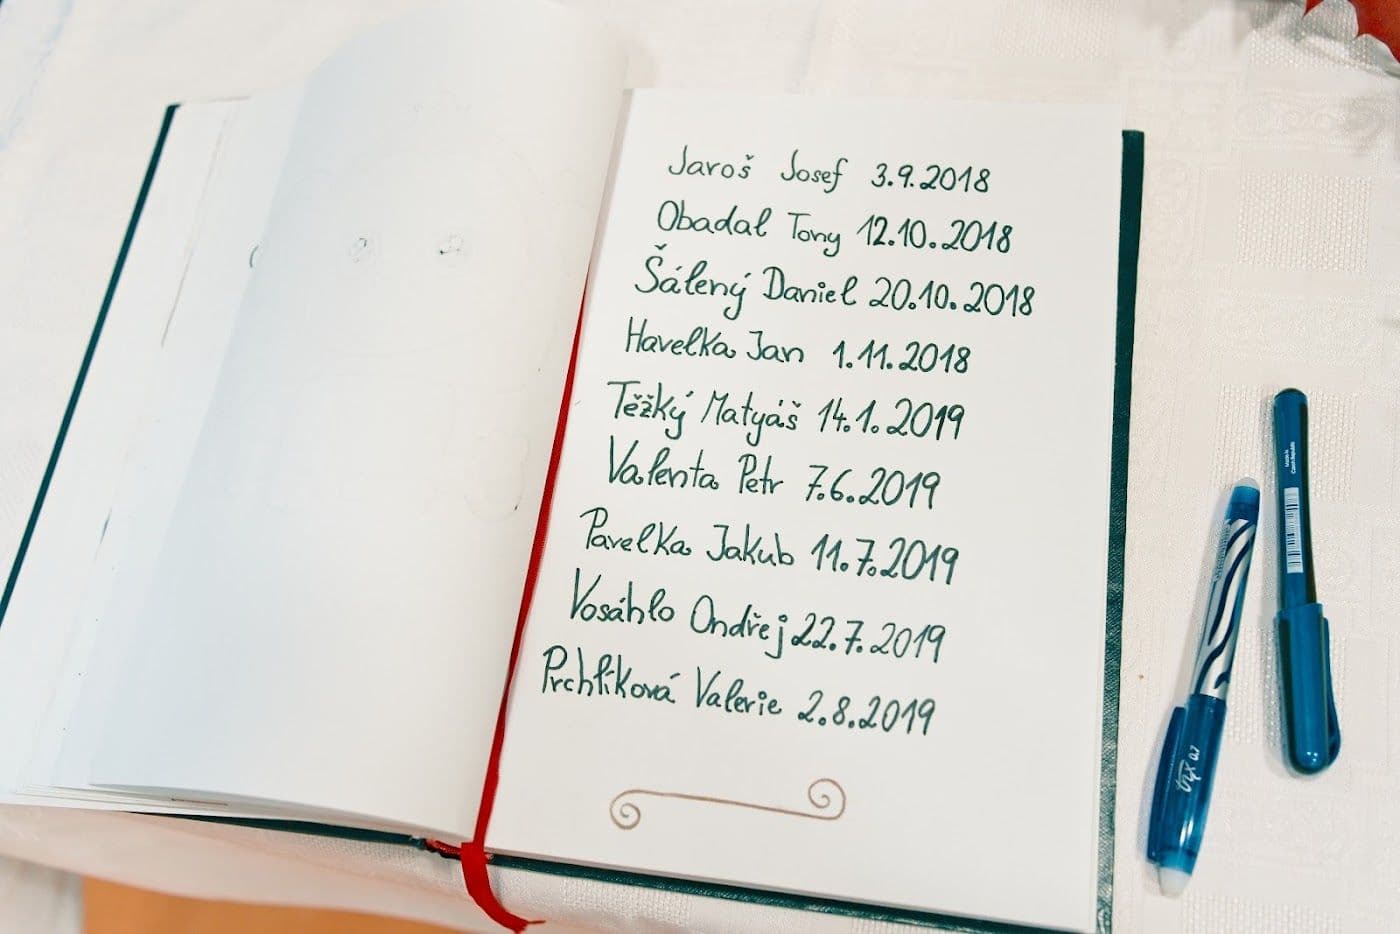 Jaroš Josef 3.9.2018
Obadal Tony 12.10.2018
Šálený Daniel 20.10.2018
Havelka Jan 1.11.2018
Těžký Matyáš 14.1.2019
Valenta Petr 7.6.2019
Pavelka Jakub 11.7.2019
Vosáhlo Ondřej 22.7.2019
Prchlíková Valerie 2.8.2019
Made in
Czech Republic
0.7